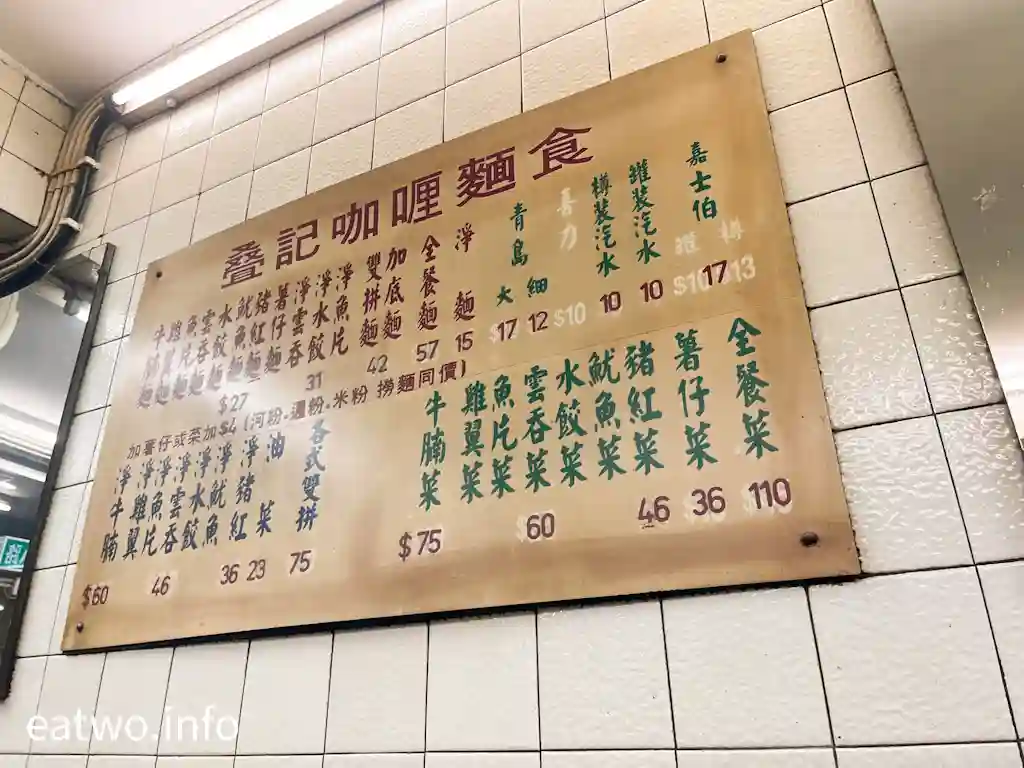 叠記咖喱麵食
牛腩麵
雞翼麵
魚片麵
雲吞麵
水餃麵
魷魚麵
豬紅麵
薯仔麵
$27
淨雲吞
淨水餃
淨魚片
31
雙拼麵
42
加底麵
全餐麵
57
淨麵
15
青島
大
17
細
12
喜力
$10
樽裝汽水
10
罐裝汽水
10
嘉士伯
罐
$10
樽
17
13
加薯仔或菜加$4(河粉.通粉.米粉 撈麵同價)
淨牛腩
$60
淨雞翼
淨魚片
淨雲吞
淨水餃
淨魷魚
46
淨豬紅
36
油菜
23
各式雙拼
75
牛腩菜
$75
雞翼菜
魚片菜
雲吞菜
水餃菜
魷魚菜
60
豬紅菜
46
薯仔菜
36
全餐菜
110
eatwo.info